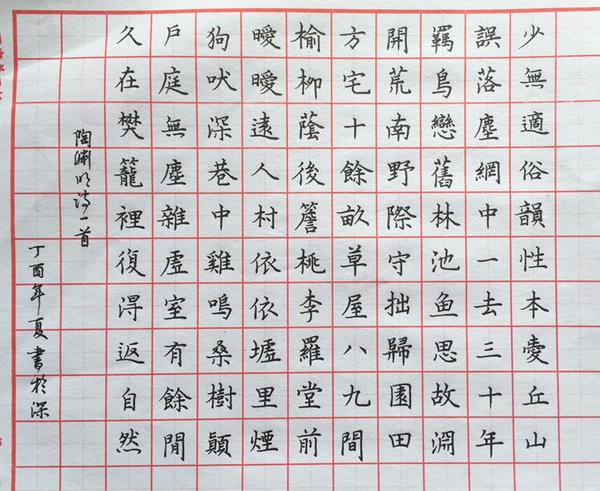 少無適俗韻性本愛丘山
誤落塵網中一去三十年
羈鳥戀舊林池鱼思故淵
開荒南野際守拙歸園田
方宅十餘畝草屋八九間
榆柳蔭後簷桃李羅堂前
曖曖遠人村依依墟里煙
狗吠深巷中雞鳴桑樹顛
戶庭無塵雜虛室有餘閒
久在樊籠裡復得返自然
陶渊明诗一首
丁酉年夏書於深